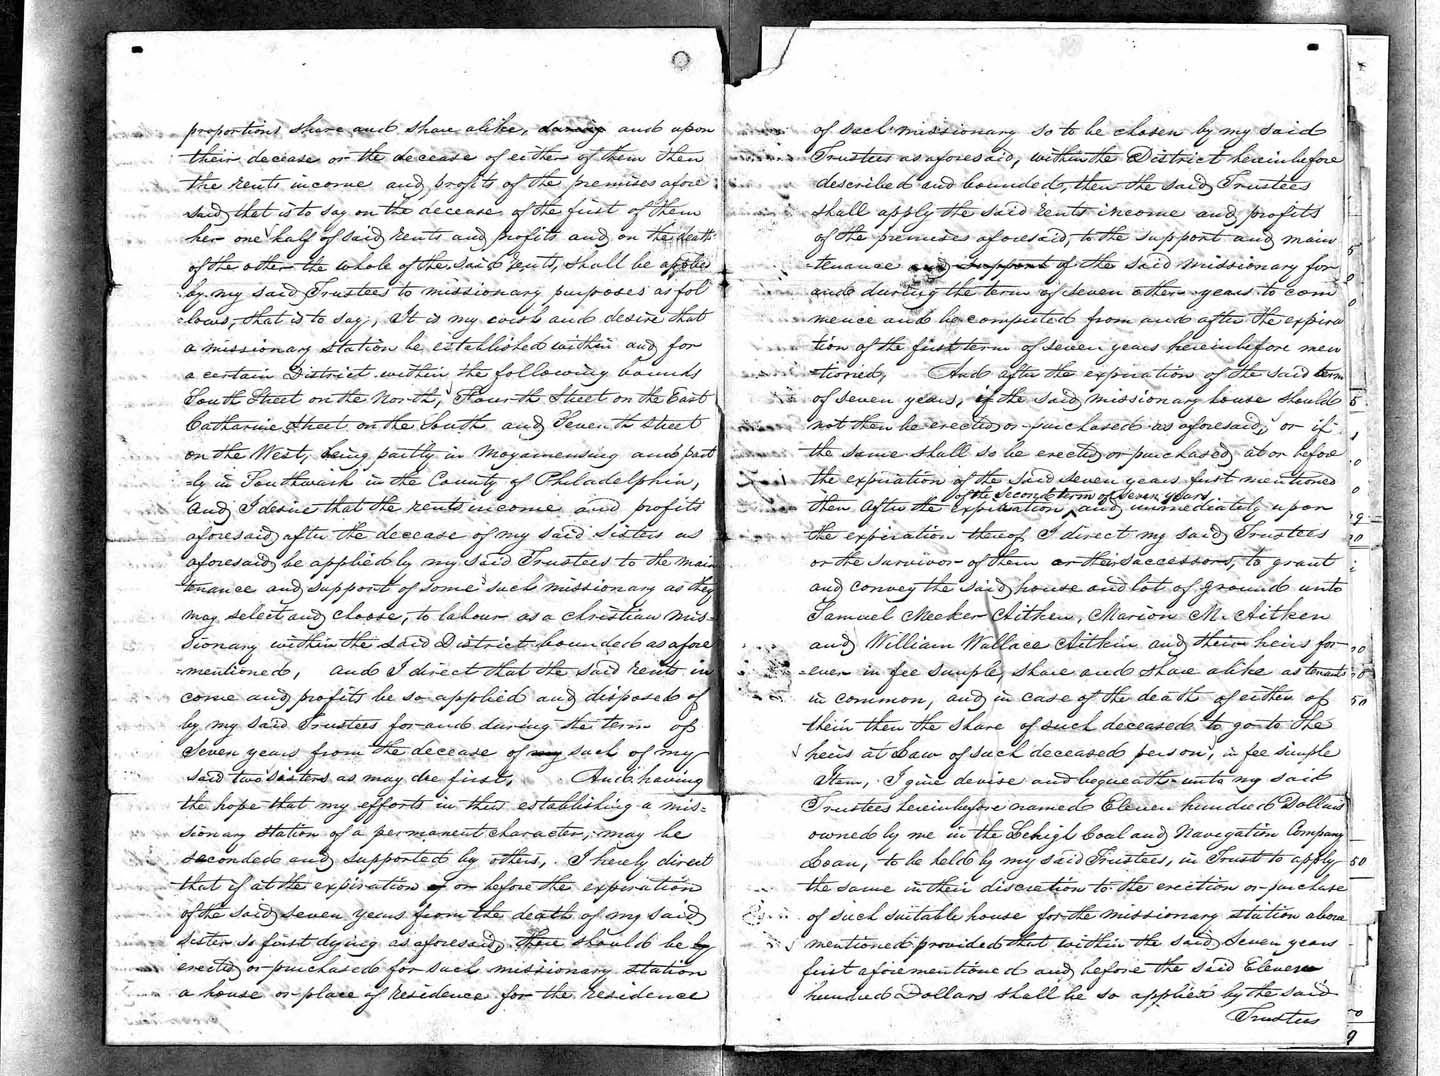 proportions share and share alike, during and upon
their decease or the decease of either of them then
the rents income and profits of the premises afore
said, that is to say on the decease of the first of them
her one half of said rents and profits and on the death
of the other the whole of the said rents, shall be applied
by my said Trustees to missionary purposes as fol
lows, that is to say, It is my wish and desire that
a missionary station be established within and for
a certain District within the following bounds
South Street on the North, Fourth Street on the East
Catharine Street on the South and Seventh Street
on the West, being partly in Moyamensing and part
=ly in Southwark in the County of Philadelphia,
and I desire that the rents income and profits
aforesaid after the decease of my said Sisters as
aforesaid be applied by my said Trustees to the main
tenance and support of some such missionary as they
may select and choose, to labour as a Christian mis=
sionary within the said District bounded as afore
=mentioned, and I direct that the said rents in
come and profits be so applied and disposed of
by my said Trustees for and during the term of
Seven years from the decease of my such of my
said two sisters as may die first, And having
the hope that my efforts in thus establishing a mis=
sionary station of a permanent character, may be
seconded and supported by others, I hereby direct
that if at the expiration of or before the expiration
of the said seven years from the death of my said
sister so first dying as aforesaid, there should be by
erected or purchased for such missionary station
a house or place of residence for the residence
of such missionary so to be chosen by my said
Trustees as aforesaid, within the District hereinbefore
described and bounded, then the said Trustees
shall apply the said rents income and profits
of the premises aforesaid, to the support and main
tenance and support of the said missionary for
and during the term of seven other years to com
mence and be computed from and after the expira
tion of the first term of seven years hereinbefore men
=tioned, And after the expiration of the said term
of seven years, if the said missionary house should
not then be erected or purchased as aforesaid, or if
the same shall so be erected or purchased at or before
the expiration of the said seven years first mentioned
of the second term of seven years
then after the expiration and immediately upon
the expiration thereof I direct my said Trustees
or the survivor of them or their successors, to grant
and convey the said house and lot of ground unto
Samuel Meeker Aitken, Marion M. Aitken
and William Wallace Aitkin and their heirs for
=ever in fee simple, share and share alike as tenants
in common, and in case of the death of either of
them then the share of such deceased to go to the
heirs at Law of such deceased person, in fee simple
Item, I give devise and bequeath unto my said
Trustees hereinbefore named Eleven hundred Dollars
owned by me in the Lehigh Coal and Navigation Company
Loan, to be held by my said Trustees, in Trust to apply
the same in their discretion to the erection or purchase
of such suitable house for the missionary station above
mentioned provided that within the said Seven years
first aforementioned and before the said Eleven
hundred Dollars shall be so applied by the said
Trustees